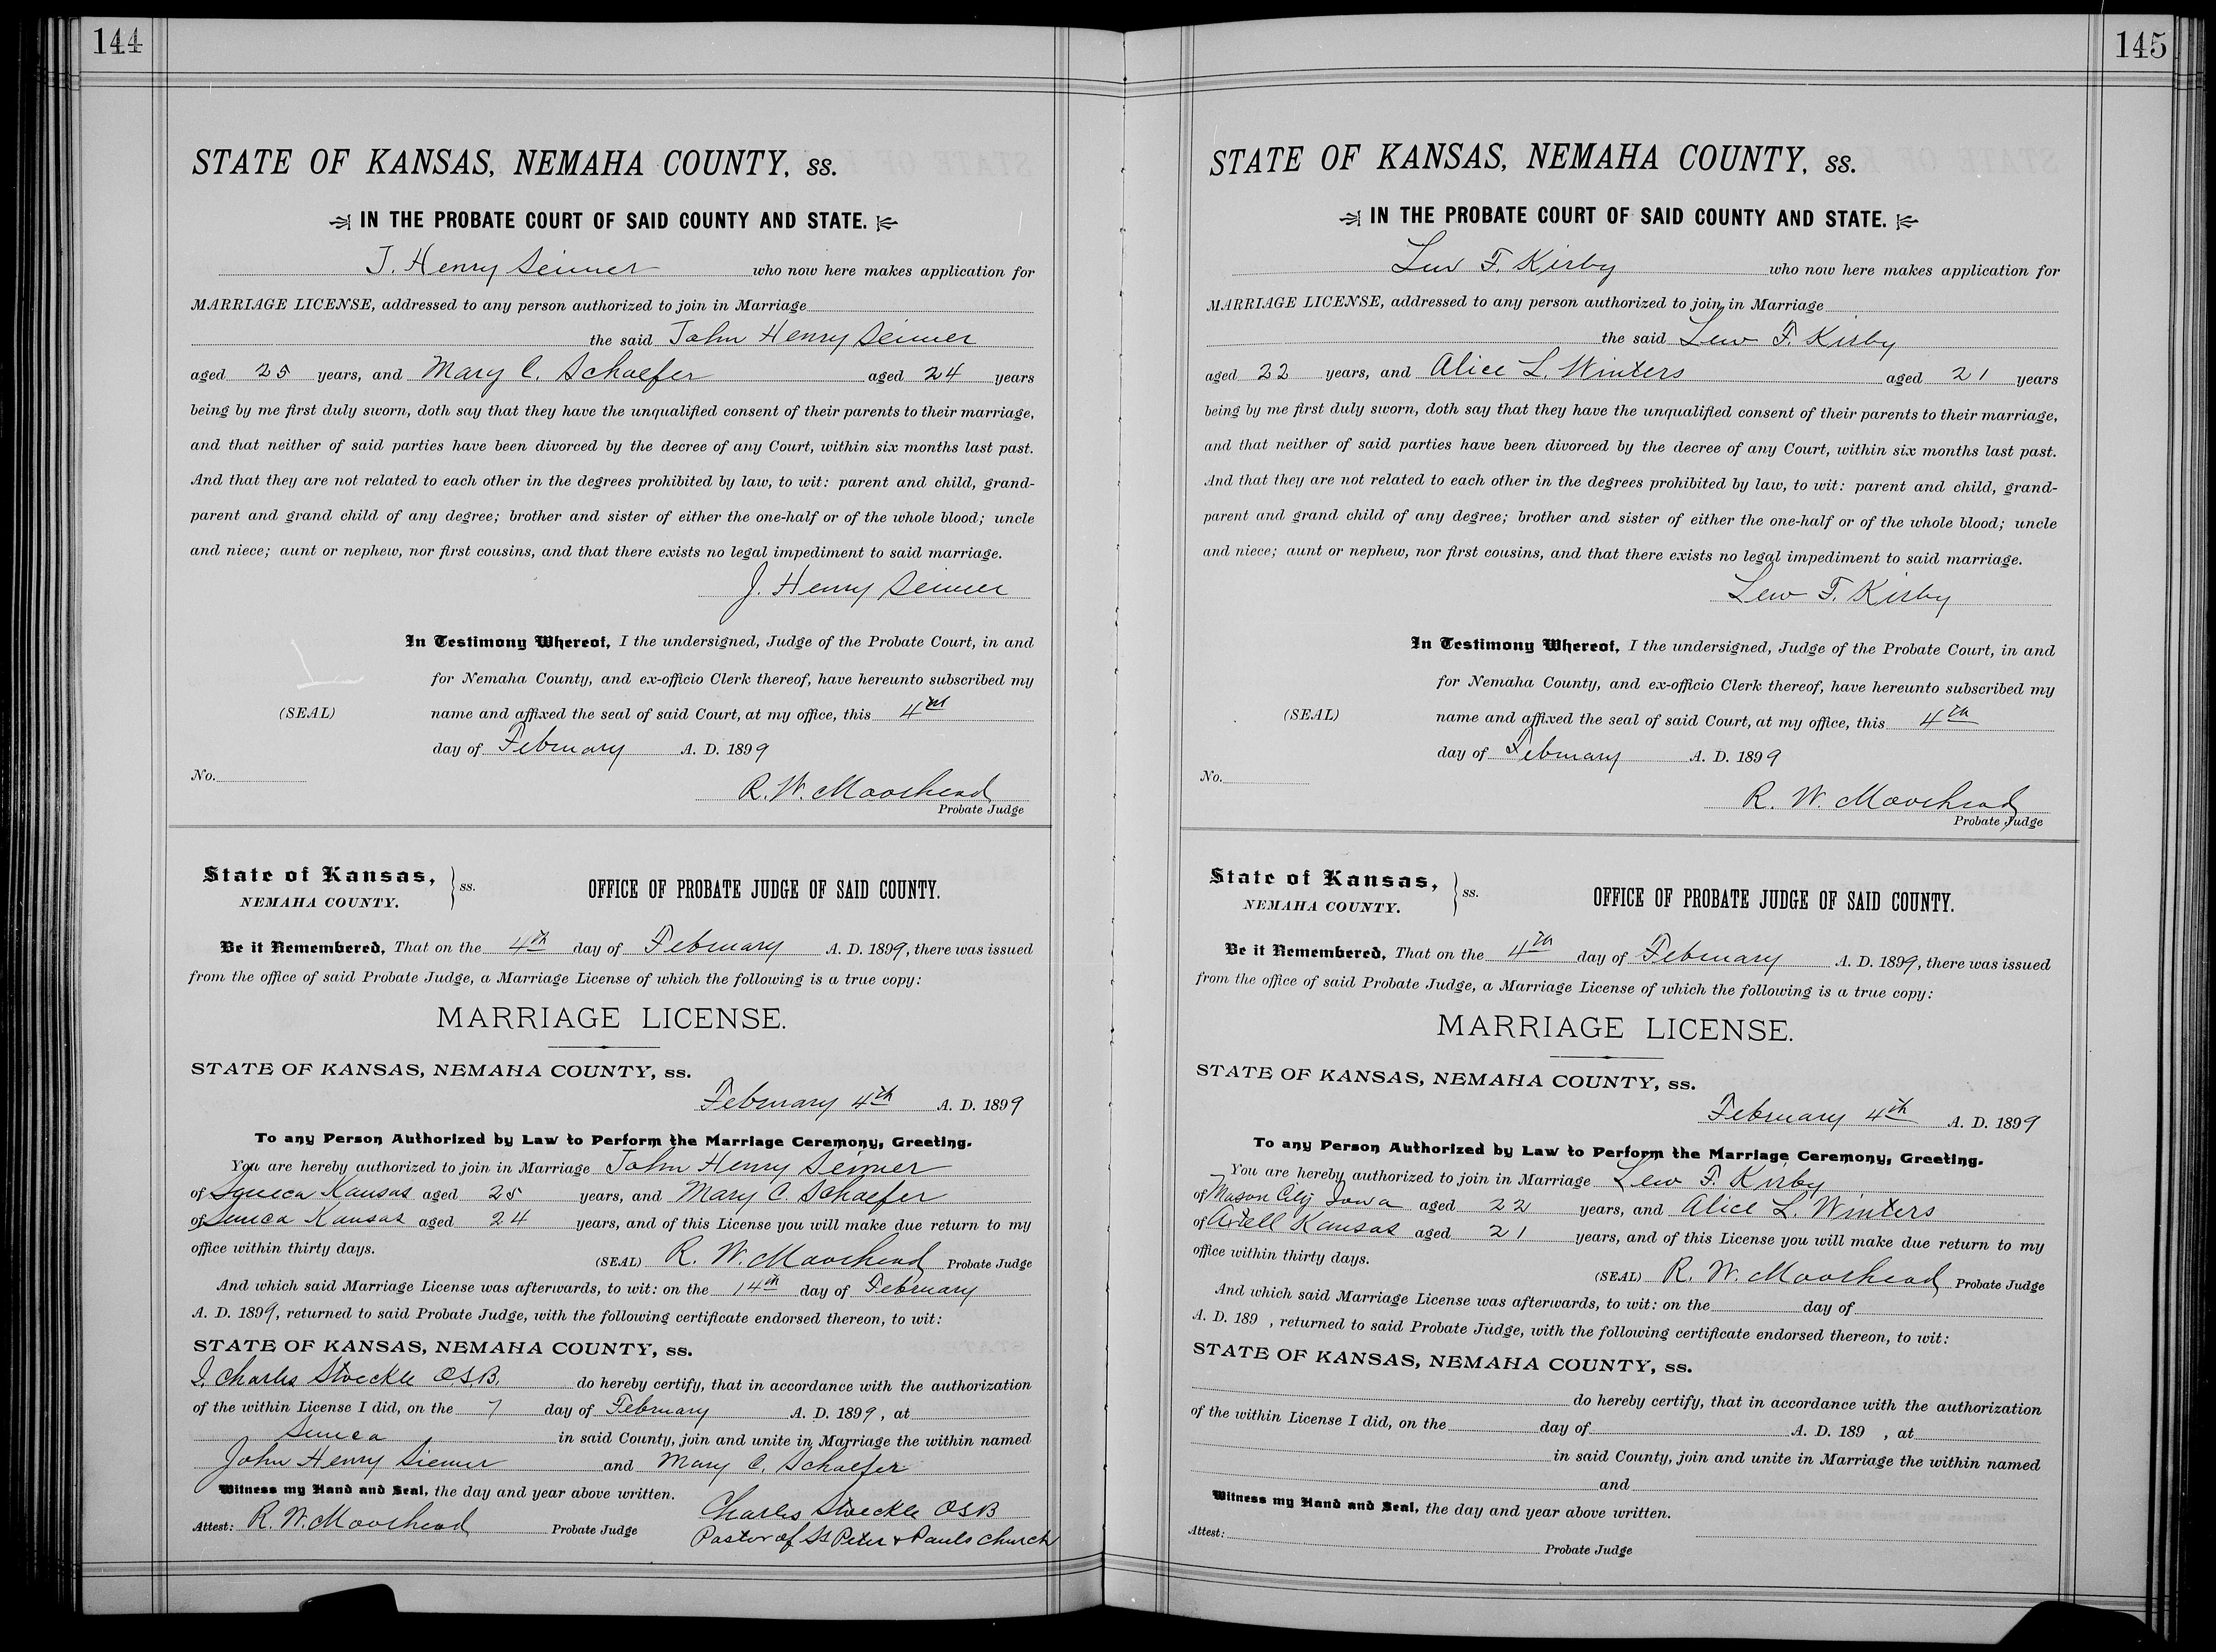 144
STATE OF KANSAS, NEMAHA COUNTY, ss.
IN THE PROBATE COURT OF SAID COUNTY AND STATE.
J. Henry Seimer who now here makes application for
MARRIAGE LICENSE, addressed to any person authorized to join in Marriage
the said John Henry Seimer
aged 25 years, and Mary C. Schaefer aged 24 years
being by me first duly sworn, doth say that they have the unqualified consent of their parents to their marriage,
and that neither of said parties have been divorced by the decree of any Court, within six months last past.
And that they are not related to each other in the degrees prohibited by law, to wit: parent and child, grand-
parent and grand child of any degree; brother and sister of either the one-half or of the whole blood; uncle
and niece; aunt or nephew, nor first cousins, and that there exists no legal impediment to said marriage.
J. Henry Seimer
In Testimony Whereof, I the undersigned, Judge of the Probate Court, in and
for Nemaha County, and ex-officio Clerk thereof, have hereunto subscribed my
(SEAL) name and affixed the seal of said Court, at my office, this 4th
day of February A. D. 1899
No.
R. W. Moorhead
Probate Judge
State of Kansas, } ss. OFFICE OF PROBATE JUDGE OF SAID COUNTY.
NEMAHA COUNTY.
Be it Remembered, That on the 4th day of February A. D. 1899, there was issued
from the office of said Probate Judge, a Marriage License of which the following is a true copy:
MARRIAGE LICENSE.
STATE OF KANSAS, NEMAHA COUNTY, ss.
February 4th A. D. 1899
To any Person Authorized by Law to Perform the Marriage Ceremony, Greeting.
You are hereby authorized to join in Marriage John Henry Seimer
of Seneca Kansas aged 25 years, and Mary C. Schaefer
of Seneca Kansas aged 24 years, and of this License you will make due return to my
office within thirty days. (SEAL) R. W. Moorhead Probate Judge
And which said Marriage License was afterwards, to wit: on the 14th day of February
A. D. 1899, returned to said Probate Judge, with the following certificate endorsed thereon, to wit:
STATE OF KANSAS, NEMAHA COUNTY, ss.
I, Charles Stoeckle O.S.B. do hereby certify, that in accordance with the authorization
of the within License I did, on the 7 day of February A. D. 1899, at
Seneca in said County, join and unite in Marriage the within named
John Henry Siemer and Mary C. Schaefer
Witness my Hand and Seal, the day and year above written.
Charles Stoeckle OSB
Attest: R. W. Moorhead Probate Judge Pastor of St Peter & Pauls Church
145
STATE OF KANSAS, NEMAHA COUNTY, ss.
IN THE PROBATE COURT OF SAID COUNTY AND STATE.
Lew F. Kirby who now here makes application for
MARRIAGE LICENSE, addressed to any person authorized to join in Marriage
the said Lew F. Kirby
aged 22 years, and Alice L. Winters aged 21 years
being by me first duly sworn, doth say that they have the unqualified consent of their parents to their marriage,
and that neither of said parties have been divorced by the decree of any Court, within six months last past.
And that they are not related to each other in the degrees prohibited by law, to wit: parent and child, grand-
parent and grand child of any degree; brother and sister of either the one-half or of the whole blood; uncle
and niece; aunt or nephew, nor first cousins, and that there exists no legal impediment to said marriage.
Lew F. Kirby
In Testimony Whereof, I the undersigned, Judge of the Probate Court, in and
for Nemaha County, and ex-officio Clerk thereof, have hereunto subscribed my
(SEAL) name and affixed the seal of said Court, at my office, this 4th
day of February A. D. 1899
No.
R. W. Moorhead
Probate Judge
State of Kansas, } ss. OFFICE OF PROBATE JUDGE OF SAID COUNTY.
NEMAHA COUNTY.
Be it Remembered, That on the 4th day of February A. D. 1899, there was issued
from the office of said Probate Judge, a Marriage License of which the following is a true copy:
MARRIAGE LICENSE.
STATE OF KANSAS, NEMAHA COUNTY, ss.
February 4th A. D. 1899
To any Person Authorized by Law to Perform the Marriage Ceremony, Greeting.
You are hereby authorized to join in Marriage Lew F. Kirby
of Mason City Iowa aged 22 years, and Alice L. Winters
of Axtell Kansas aged 21 years, and of this License you will make due return to my
office within thirty days. (SEAL) R. W. Moorhead Probate Judge
And which said Marriage License was afterwards, to wit: on the day of
A. D. 189 , returned to said Probate Judge, with the following certificate endorsed thereon, to wit:
STATE OF KANSAS, NEMAHA COUNTY, ss.
do hereby certify, that in accordance with the authorization
of the within License I did, on the day of A. D. 189 , at
in said County, join and unite in Marriage the within named
and
Witness my Hand and Seal, the day and year above written.
Attest: Probate Judge